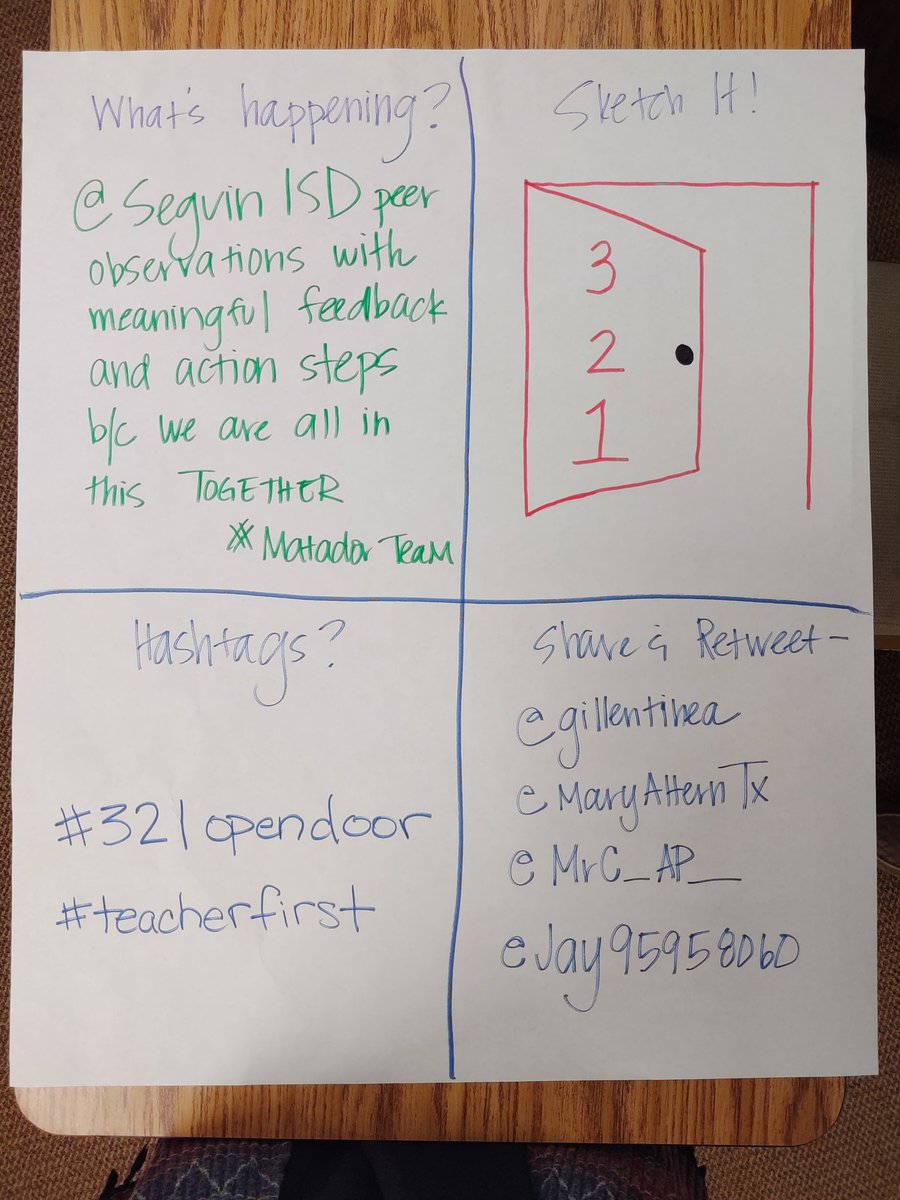 What's happening?
@Seguin ISD peer
observations with
meaningful feedback
and action steps
b/c we are all in
this TOGETHER
#Matador Team
Sketch It!
3
2
1
Hashtags?
#321opendoor
#teacherfirst
Share & Retweet-
@gillentinea
@MaryAHernTx
@MrC_AP_
@Jay95958060